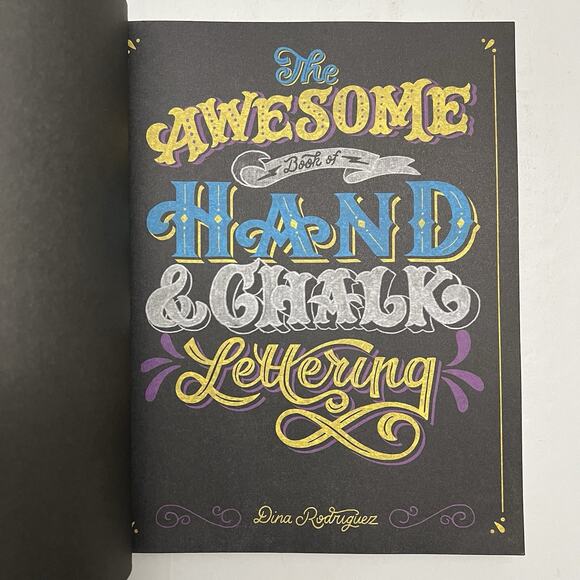 The
AWESOME
Book of
HAND
& CHALK
Lettering
Dina Rodriguez